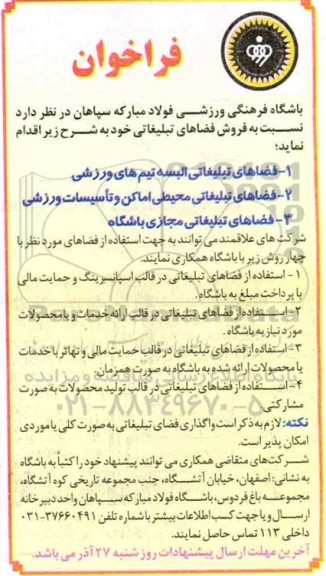 فراخوان
باشگاه فرهنگی ورزشی فولاد مبارکه سپاهان در نظر دارد
نسبت به فروش فضاهای تبلیغاتی خود به شرح زیر اقدام
نماید؛
۱-فضاهای تبلیغاتی البسه تیم های ورزشی
۲-فضاهای تبلیغاتی محیطی اماکن و تأسیسات ورزشی
۳-فضاهای تبلیغاتی مجازی باشگاه
شرکت های علاقمند می توانند به جهت استفاده از فضاهای مورد نظر با
چهار روش زیر با باشگاه همکاری نمایند.
۱- استفاده از فضاهای تبلیغاتی در قالب اسپانسرینگ و حمایت مالی
با پرداخت مبلغ به باشگاه.
۲-استفاده از فضاهای تبلیغاتی در قالب ارائه خدمات و یا محصولات
مورد نیاز به باشگاه.
۳-استفاده از فضاهای تبلیغاتی در قالب حمایت مالی و تهاتر با خدمات
یا محصولات ارائه شده به باشگاه به صورت همزمان.
۴- استفاده از فضاهای تبلیغاتی در قالب تولید محصولات به صورت
مشارکتی.
۰۲۱-۸۸۳۴۹۶۷۰-۵
نکته: لازم به ذکر است واگذاری فضای تبلیغاتی به صورت کلی یا موردی
امکان پذیر است.
شرکت های متقاضی همکاری می توانند پیشنهاد خود را کتباً به باشگاه
به نشانی: اصفهان، خیابان آتشگاه، جنب مجموعه تاریخی کوه آتشگاه،
مجموعه باغ فردوس، باشگاه فولاد مبارکه سپاهان واحد دبیرخانه
ارسال و یا جهت کسب اطلاعات بیشتر با شماره تلفن ۳۷۶۶۰۴۹۱-۰۳۱
داخلی ۱۱۳ تماس حاصل نمایند.
آخرین مهلت ارسال پیشنهادات روز شنبه ۲۷ آذر می باشد.